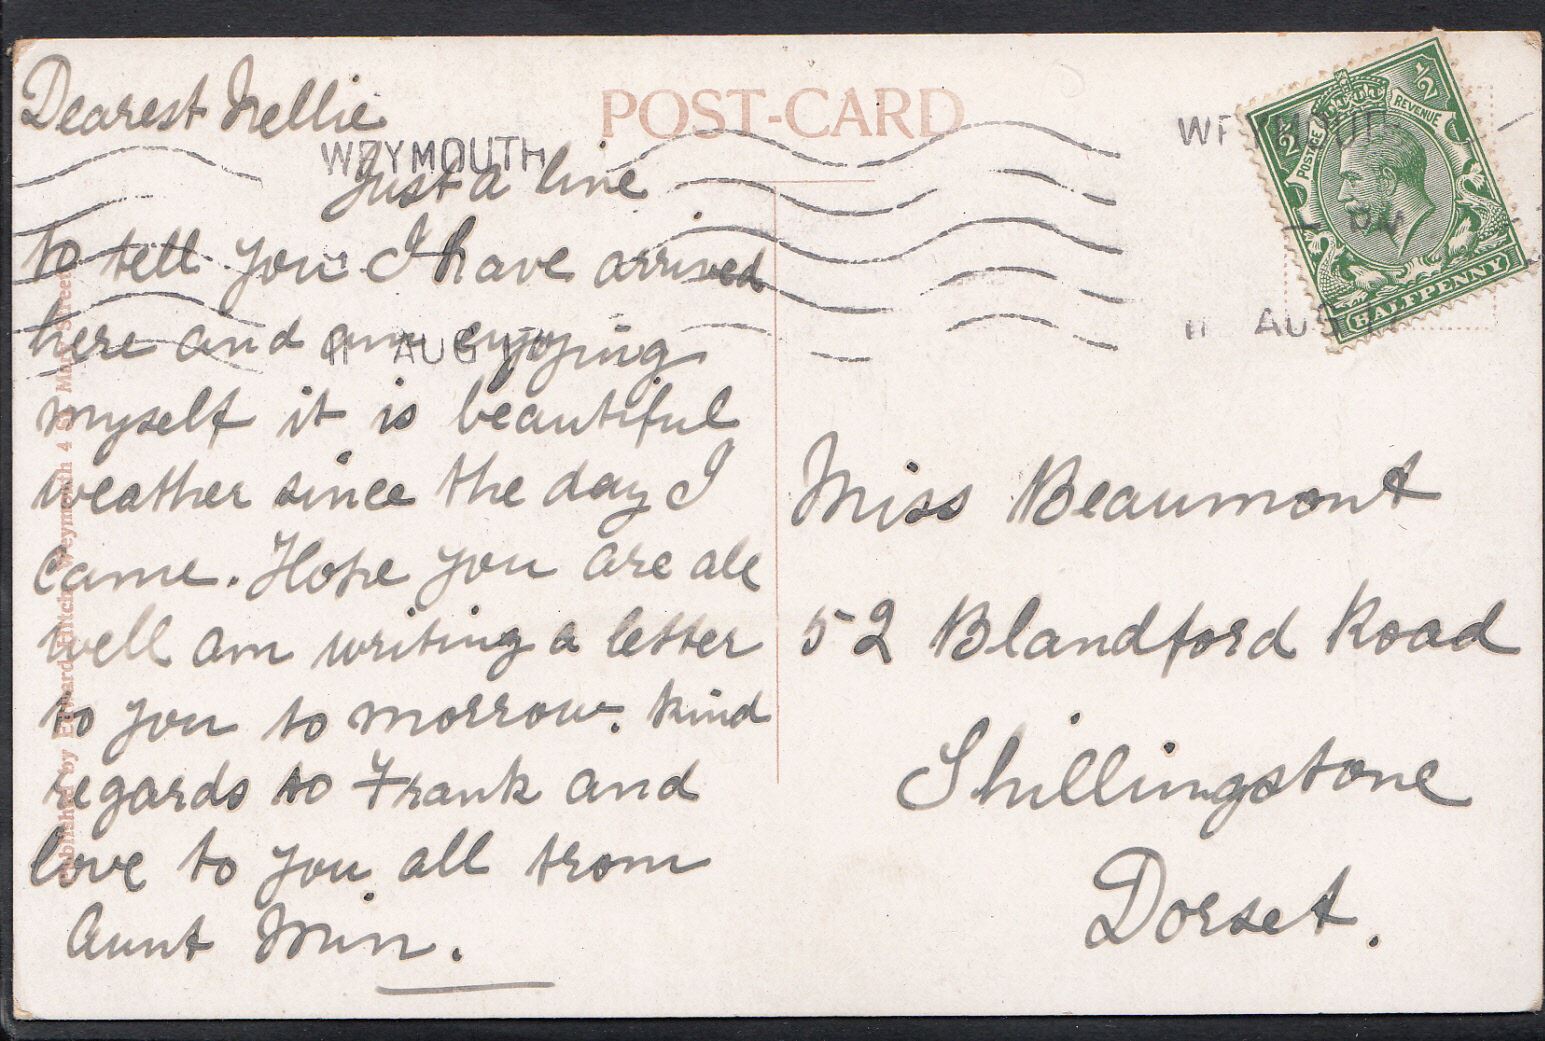 POST-CARD
Dearest Nellie
Just a line
to tell you I have arrived
here and am enjoying
myself it is beautiful
weather since the day I
came. Hope you are all
well am writing a letter
to you to morrow. Kind
regards to Frank and
love to you all from
Aunt Min.
Miss Beaumont
52 Blandford Road
Shillingstone
Dorset.
WEYMOUTH
11 AUG
WEYMOUTH
PM
11 AUG
POSTAGE
REVENUE
½
½
HALFPENNY
Published by Edward Hitch, Weymouth 4 St. Mary Street